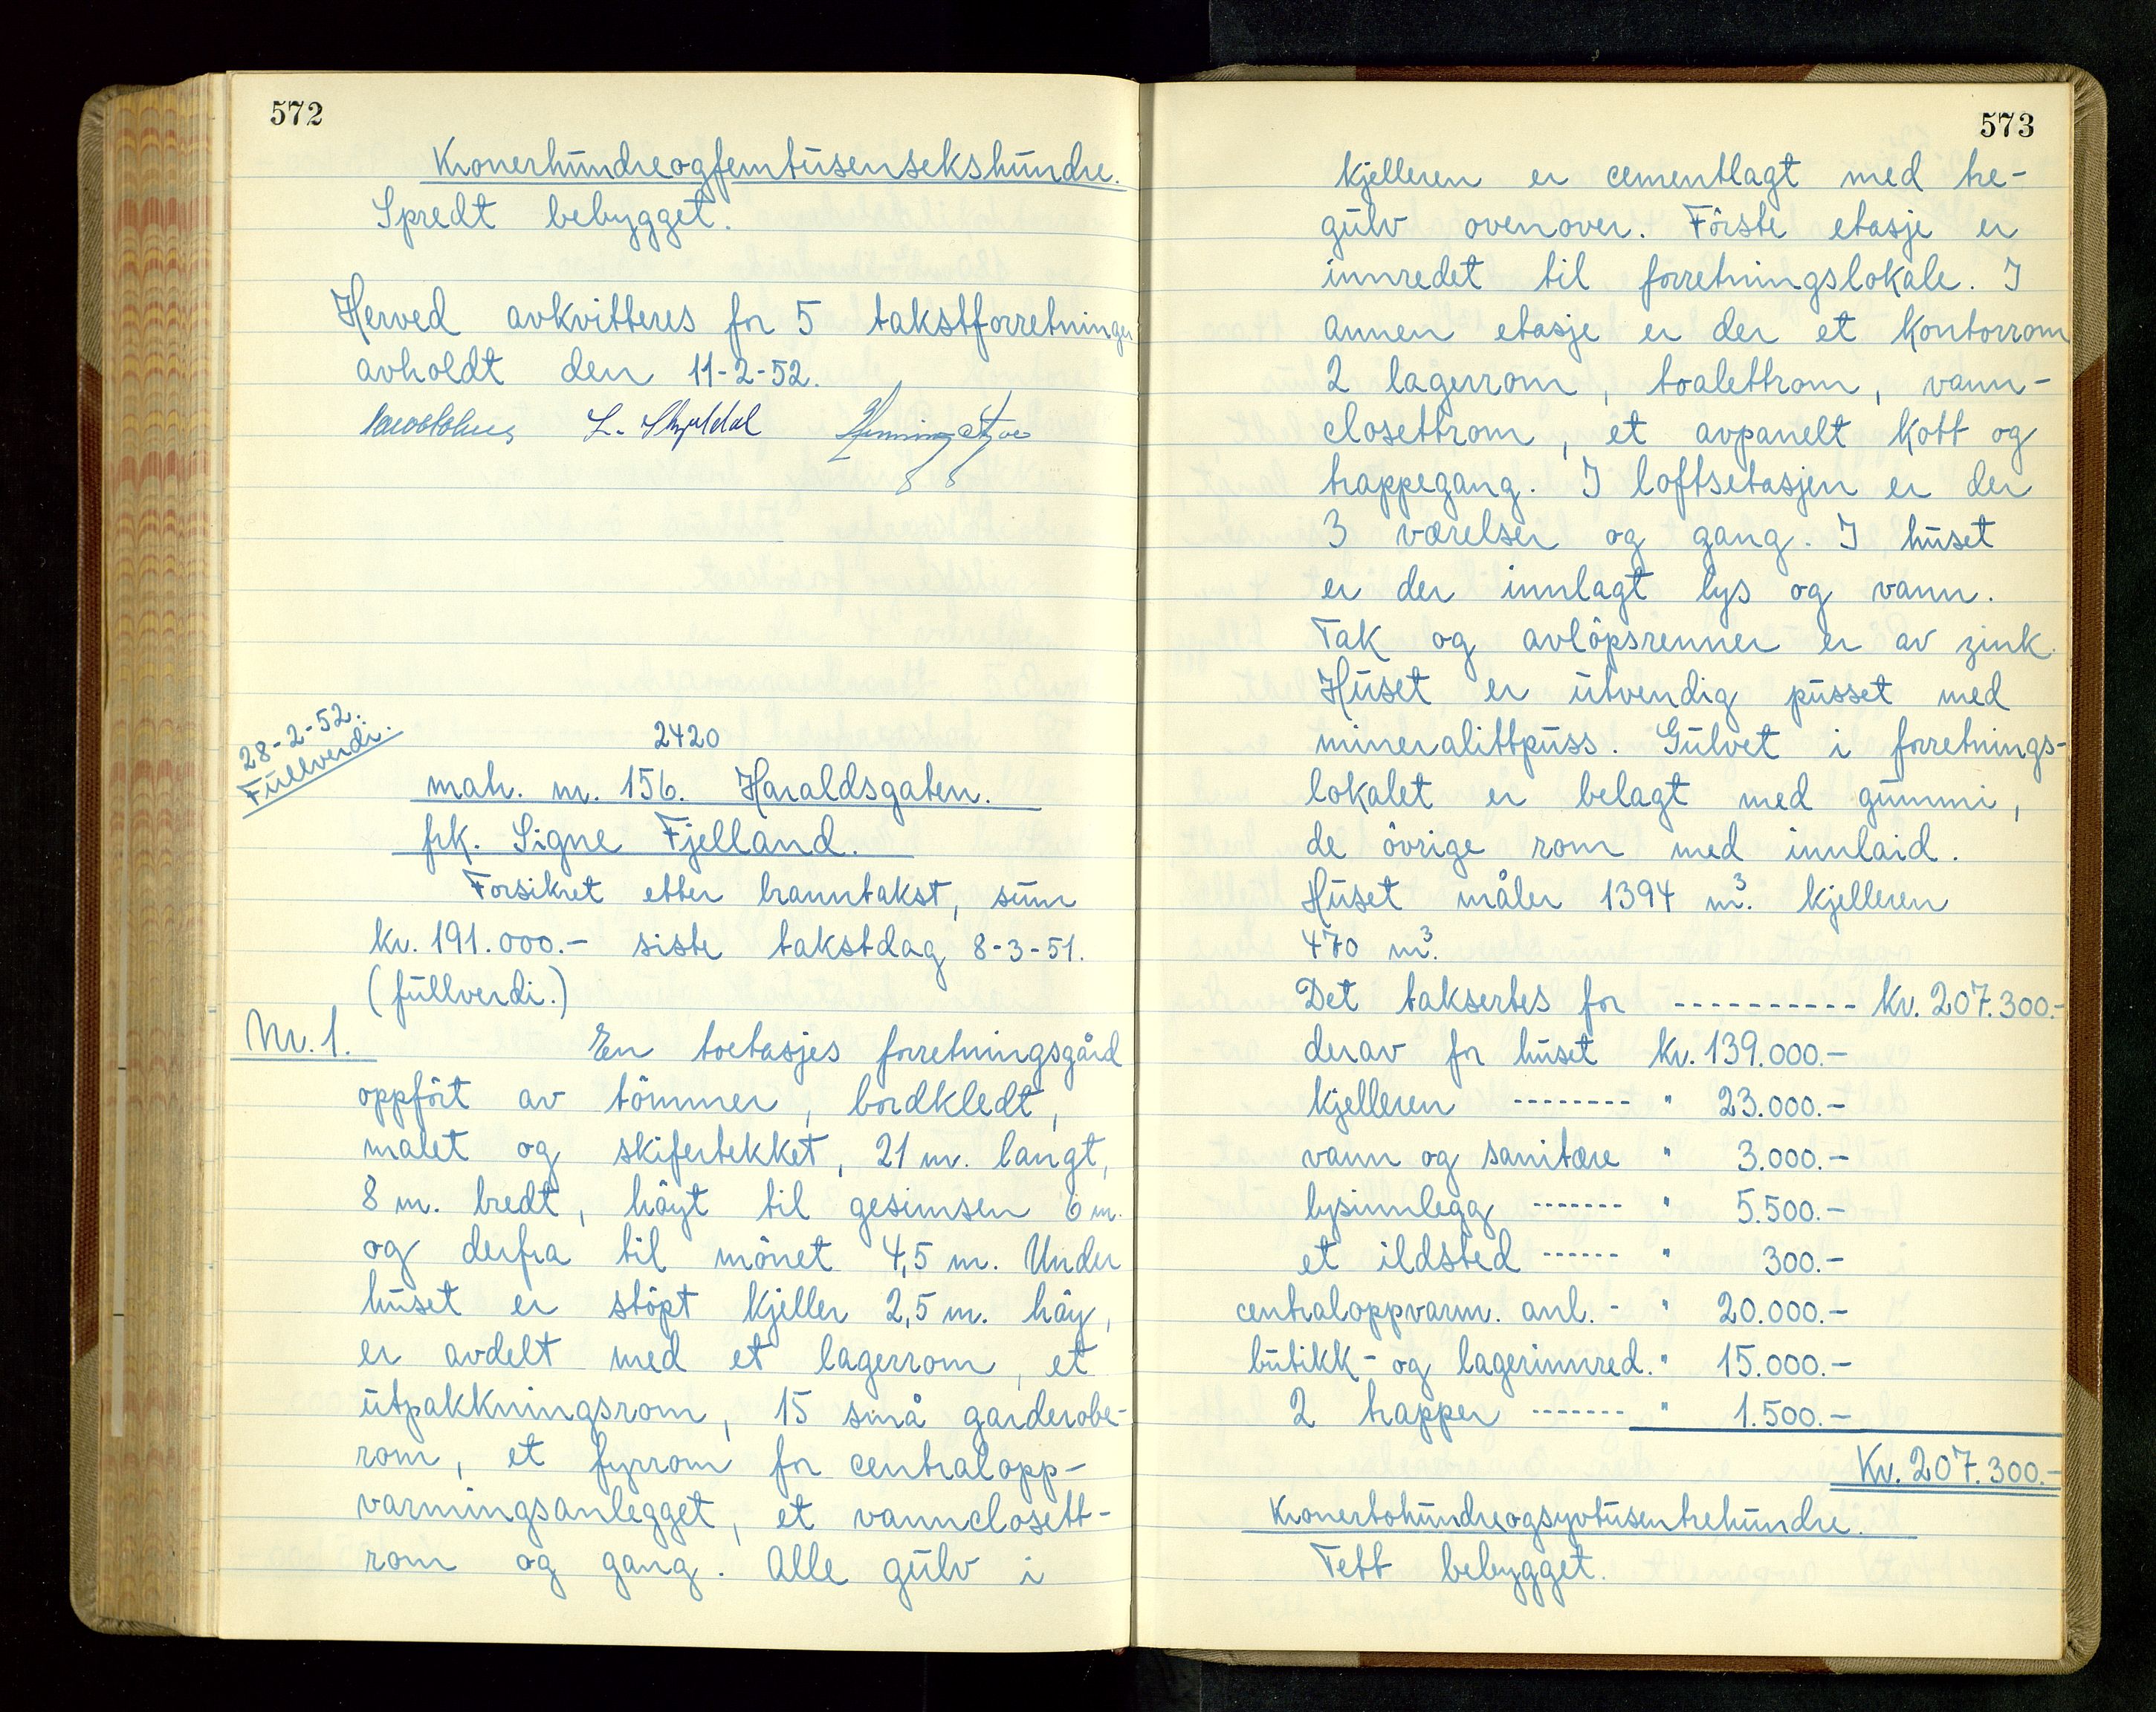 572
Kronerhundreogfemtusensekshundre.
Spredt bebygget.
Herved avkvitteres for 5 takstforretninger
avholdt den 11-2-52.
L. Skjoldal Henning
28-2-52.
Fullverdi.
2420
matr. nr. 156. Haraldsgaten.
frk. Signe Fjelland.
Forsikret etter branntakst, sum
kr. 191.000.- siste takstdag 8-3-51.
(fullverdi.)
Nr. 1. En toetasjes forretningsgård
oppført av tömmer, bordkledt,
malet og skifertekket, 21 m. langt,
8 m. bredt, höyt til gesimsen 6 m.
og derfra til mönet 4,5 m. Under
huset er stöpt kjeller 2,5 m. höy,
er avdelt med et lagerrom, et
utpakkningsrom, 15 små garderobe-
rom, et fyrrom for centralopp-
varmingsanlegget, et vannclosett-
rom og gang. Alle gulv i
573
kjelleren er cementlagt med tre-
gulv ovenover. Förste etasje er
innredet til forretningslokale. I
annen etasje er der et kontorrom
2 lagerrom, toalettrom, vann-
closettrom, et avpanelt kott og
trappegang. I loftsetasjen er der
3 værelser og gang. I huset
er der innlagt lys og vann.
Tak og avlöpsrenner er av zink.
Huset er utvendig pusset med
mineralittpuss. Gulvet i forretnings-
lokalet er belagt med gummi,
de övrige rom med innlaid.
Huset måler 1394 m³. kjelleren
470 m³.
Det taksertes for ---------- kr. 207.300.-
derav for huset kr. 139.000.-
kjelleren -------- " 23.000.-
vann og sanitære " 3.000.-
lysinnlegg ------- " 5.500.-
et ildsted ------ " 300.-
centraloppvarm. anl. - " 20.000.-
butikk- og lagerinnred. " 15.000.-
2 trapper ------- " 1.500.-
Kr. 207.300.-
Kronertohundreogsyvtusentrehundre.
Tett bebygget.